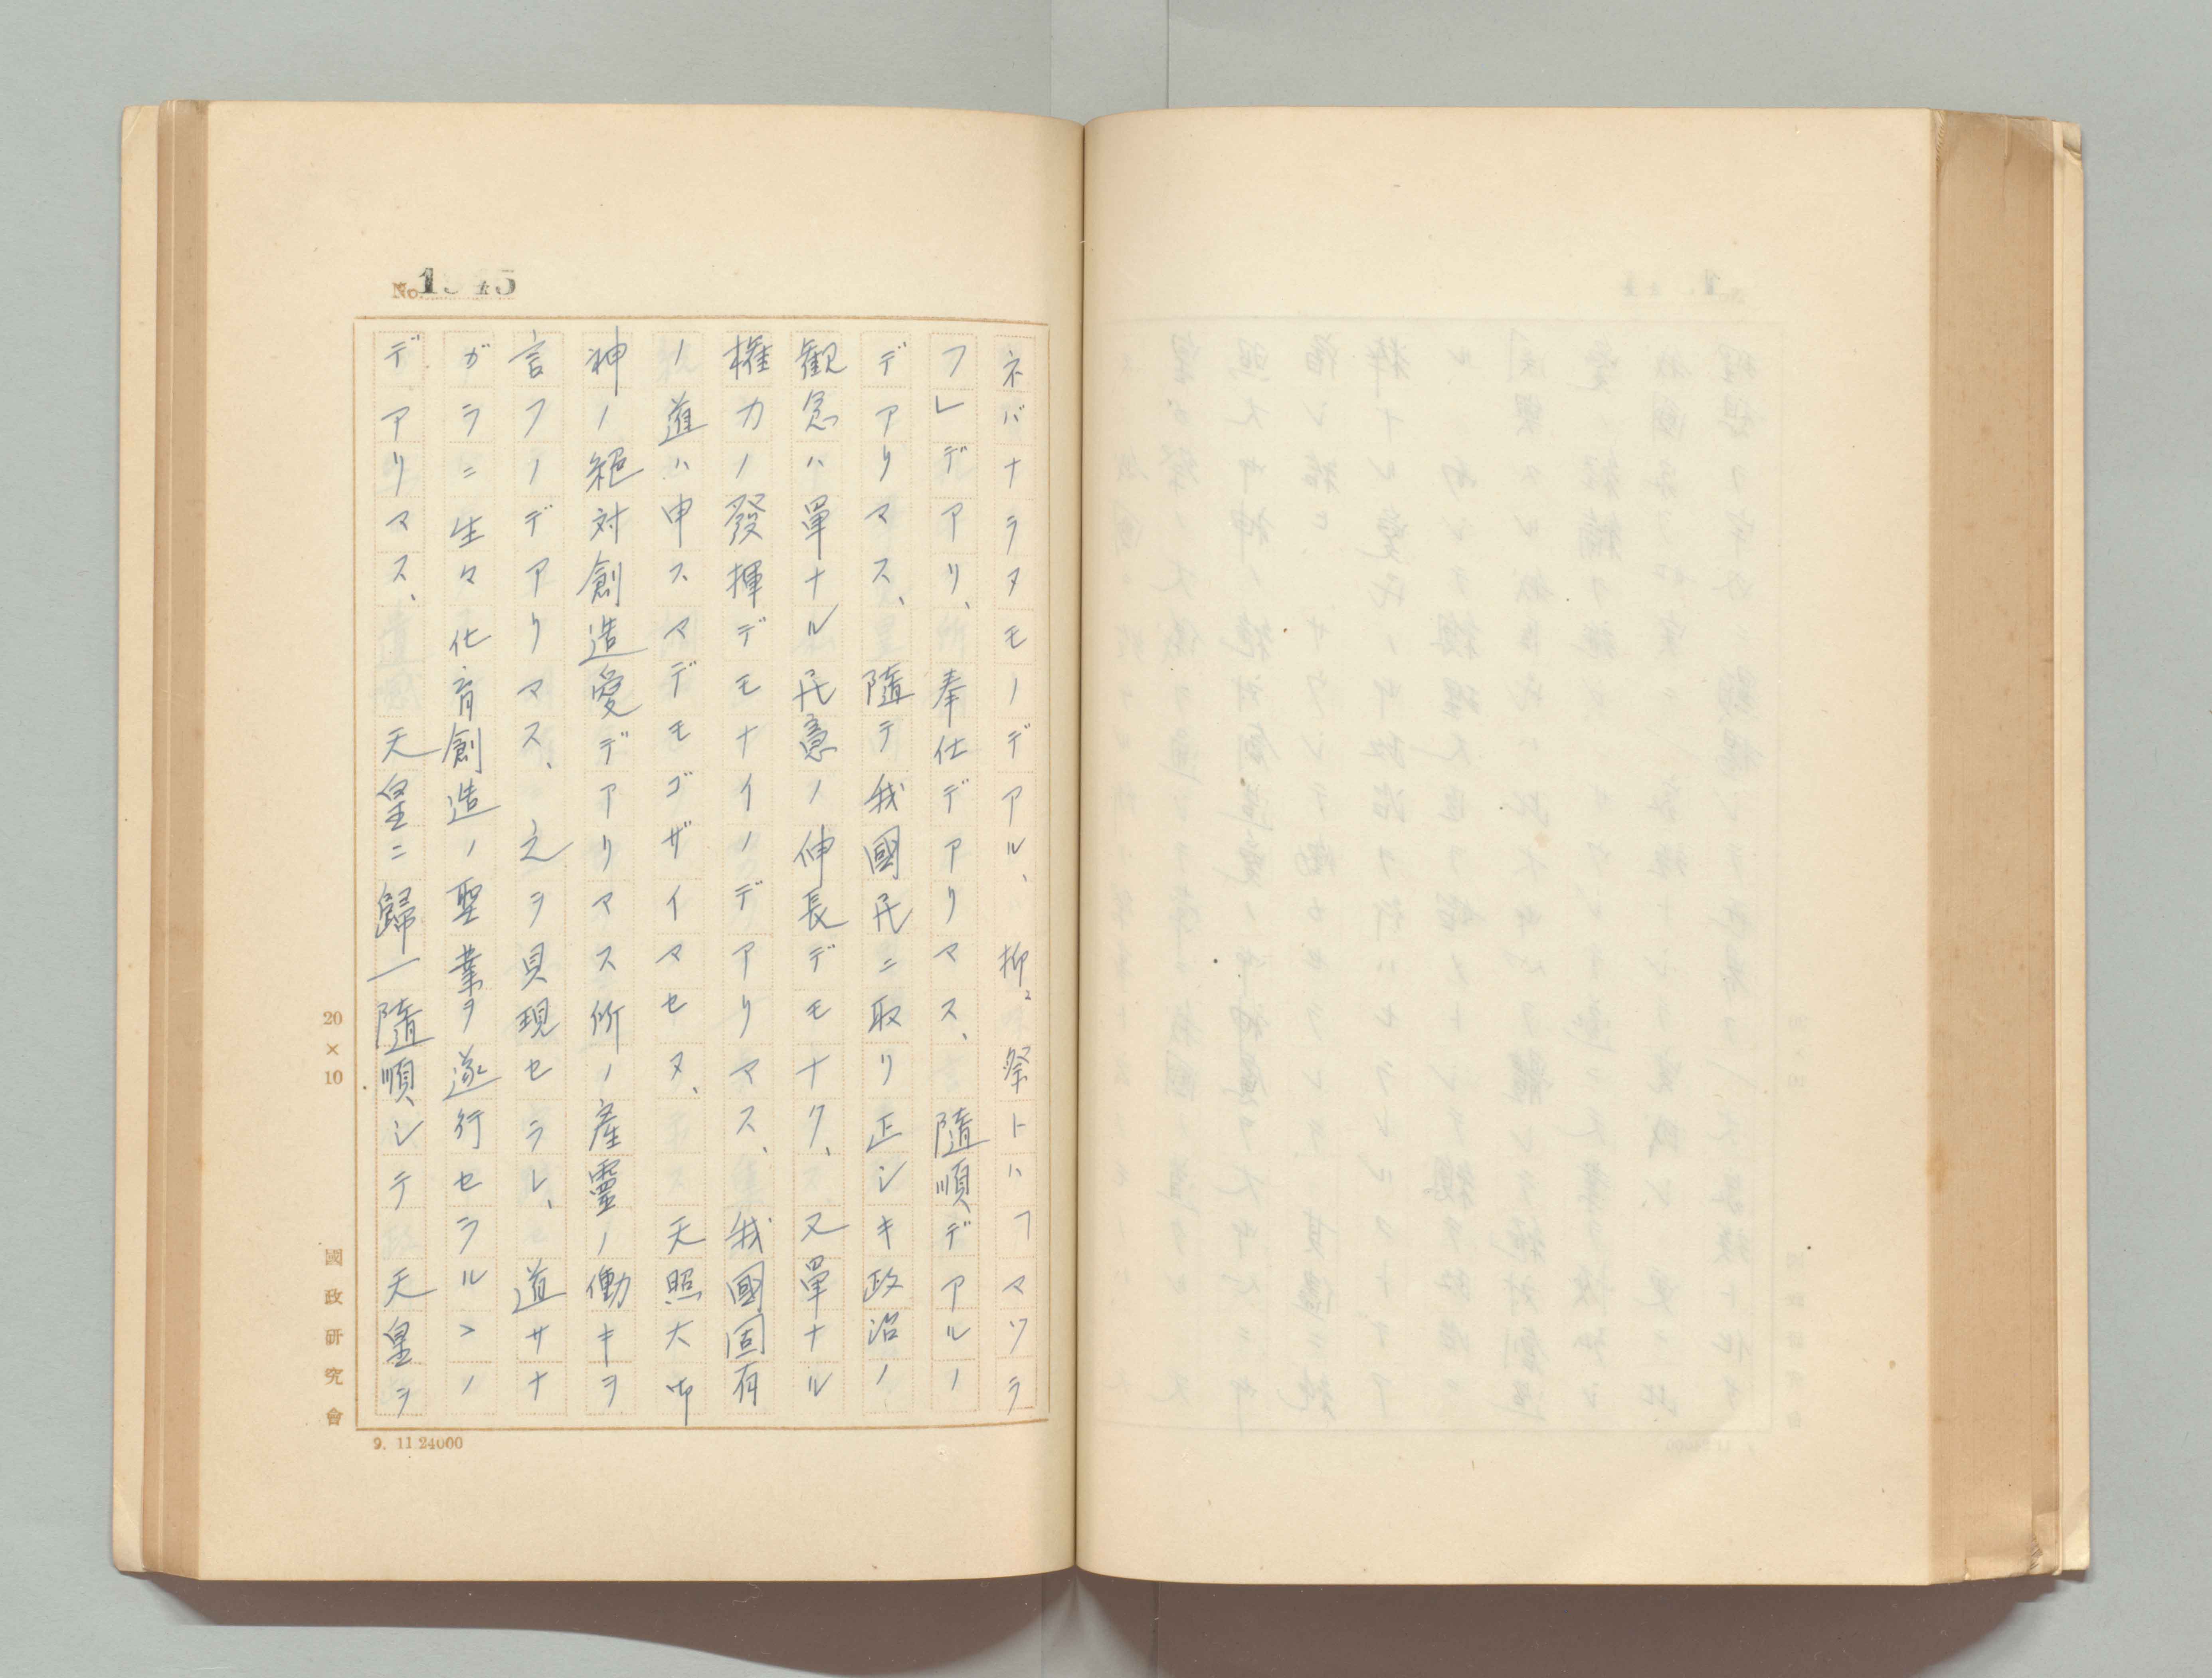 ネバナラヌモノデアル、抑〻祭トハ「マツラ
フ」デアリ、奉仕デアリマス、隨順デアルノ
デアリマス、隨テ我國民ニ取リ正シキ政治ノ
観念ハ單ナル民意ノ伸長デモナク、又單ナル
權力ノ發揮デモナイノデアリマス、我國固有
ノ道ハ申スマデモゴザイマセヌ、天照大御
神ノ絕対創造愛デアリマス所ノ産靈ノ働キヲ
言フノデアリマス、之ヲ具現セラレ、道サナ
ガラニ生々化育創造ノ聖業ヲ遂行セラルヽノ
デアリマス、天皇ニ歸一隨順シテ天皇ヲ
20×10
國政研究會
9. 11 24000